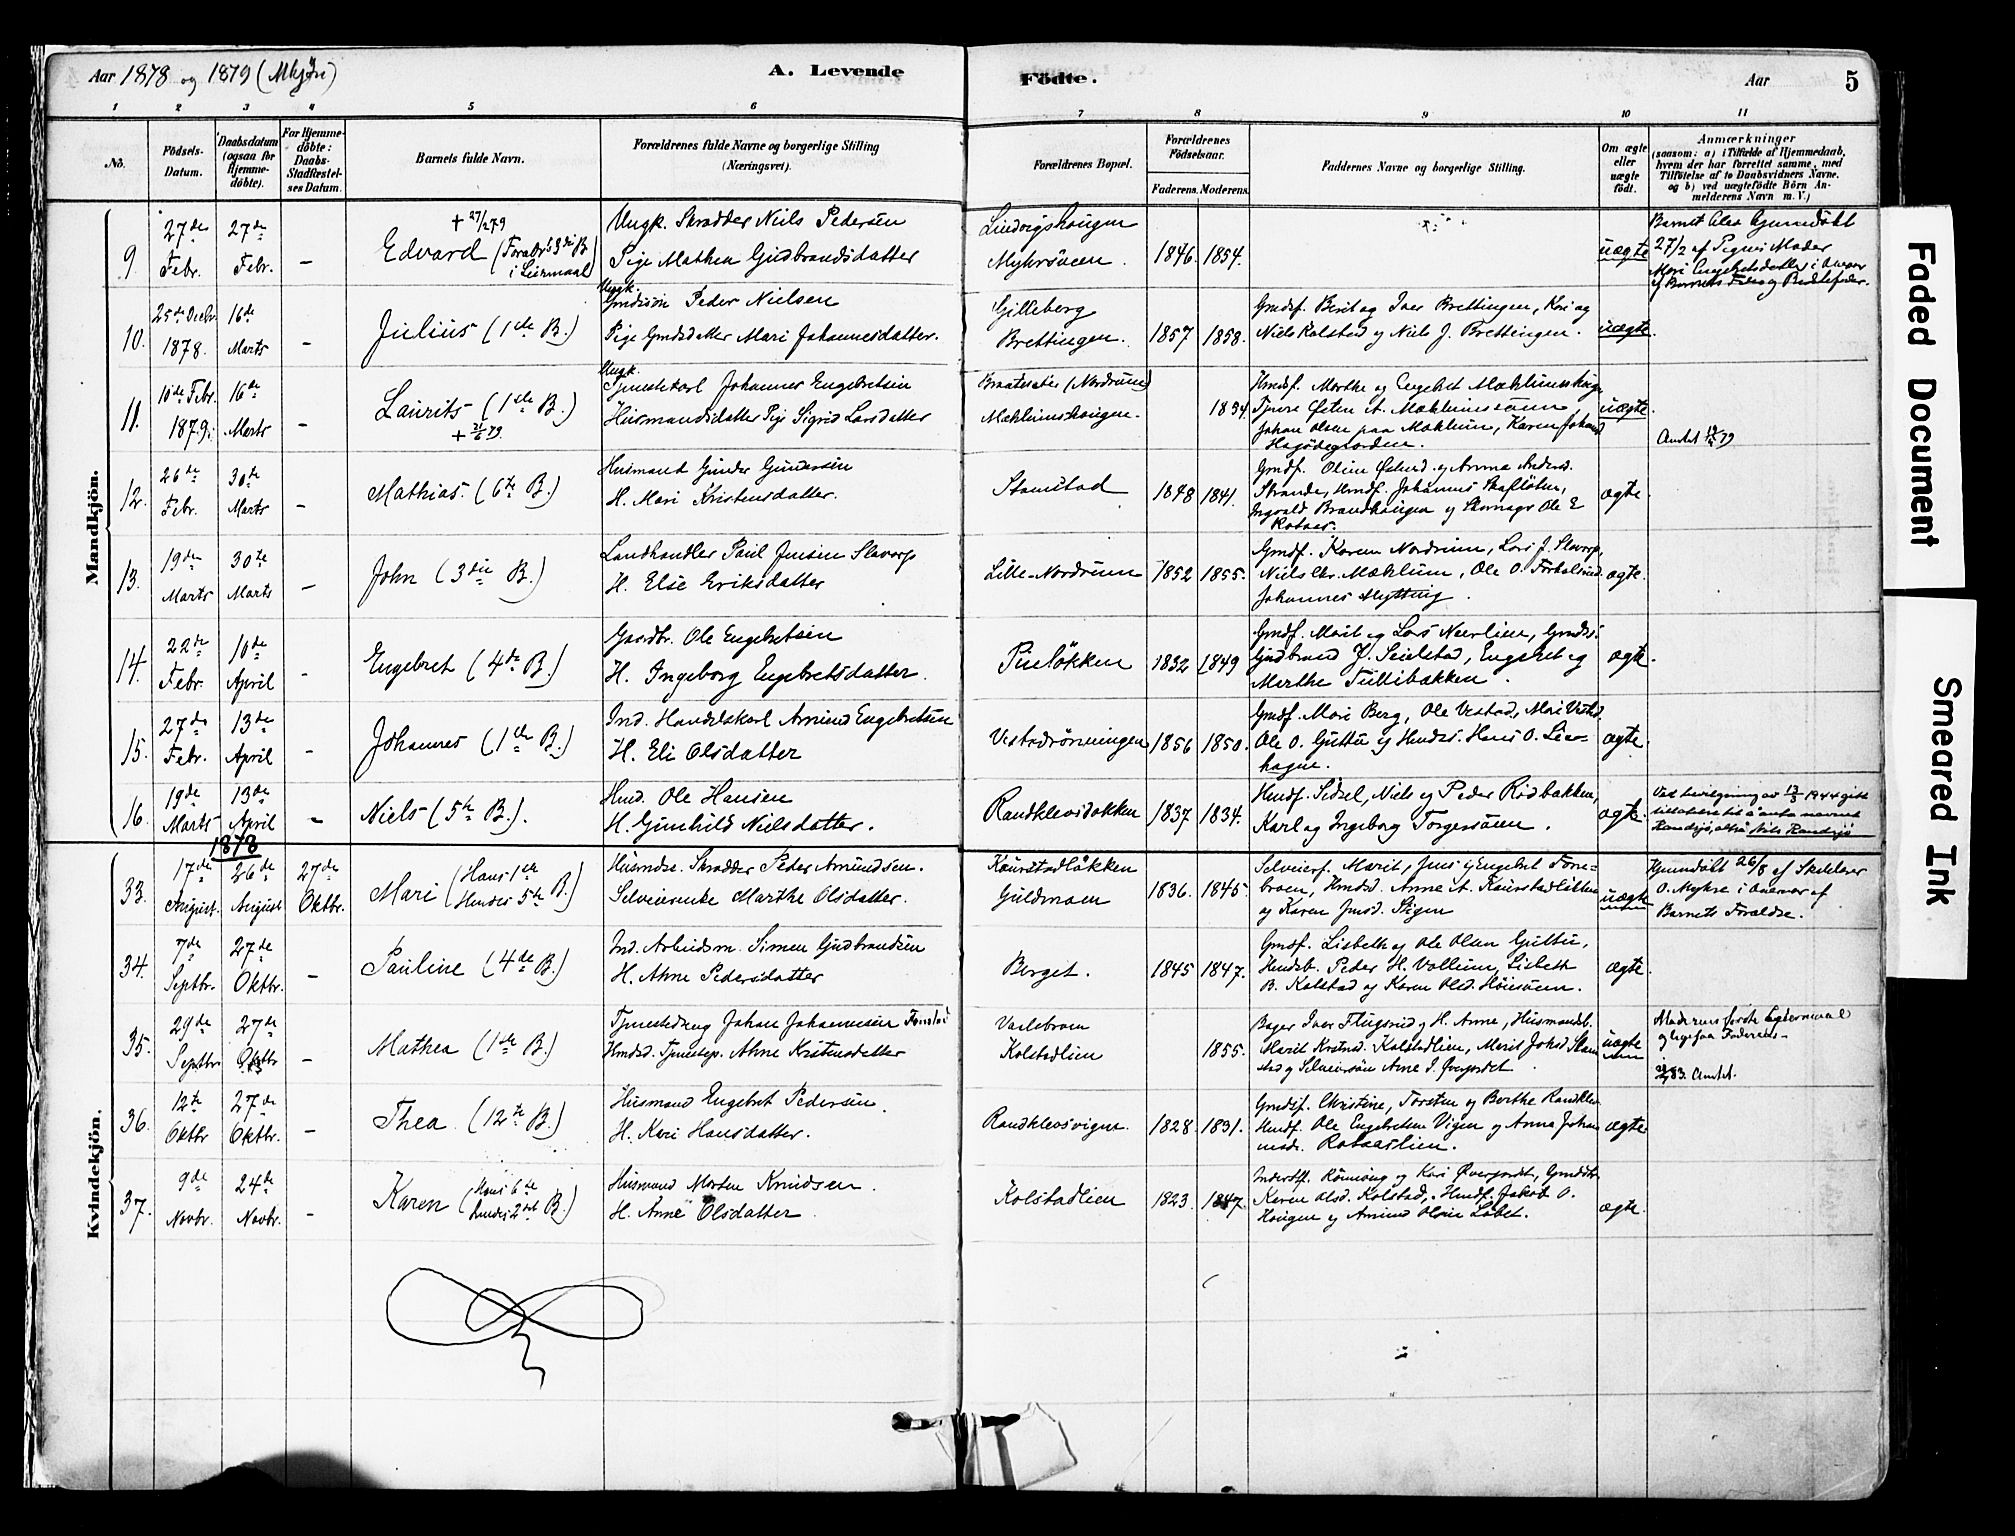 Aar 1878 og 1879 (Mkjön)
A. Levende
Födte.
Aar
5
1 2 3 4 5 6 7 8 9 10 11
No.
Födsels-
Datum.
Daabsdatum
(ogsaa for
Hjemme-
döbte).
For Hjemme-
döbte:
Daabs-
Stadfæstel-
ses Datum.
Barnets fulde Navn.
Forældrenes fulde Navne og borgerlige Stilling
(Næringsvei).
Forældrenes Bopæl.
Forældrenes
Födselsaar.
Faderens. Moderens.
Faddernes Navne og borgerlige Stilling.
Om ægte
eller
uægte
födt.
Anmærkninger
(saasom: a) i Tilfælde af Hjemmedaab,
hvem der har forrettet samme, med
Tilföielse af to Daabsvidners Navne.
og b) ved uægtefödte Börn An-
melderens Navn m.V.)
Mandkjön.
9.
27de
Febr.
27de
Febr.
–
+ 27/2 79
Edvard (Forældr's 3die B.
i Leiermaal)
Ungk. Skrædder Niels Pedersen
Pige Mathea Gudbrandsdatter
Lindvigshougen
Myhrsveen.
1846. 1854.
uægte
Barnet blev hjemmedöbt
27/2 af Pigens Moder
Mari Engebretsdatter i Overvær
af Barnets Fader og Bedstefader.
10.
25de Decbr.
1878.
16de
Marts
–
Julius (1ste B.)
Ungk.
Grndssön Peder Nielsen
Pige Grndsdatter Mari Johannesdatter.
Gilleberg
Brettingen.
1857 1858.
Grndsf. Berit og Iver Brettingen, Kari og
Niels Kolstad og Niels J. Brettingen.
uægte.
11.
10de Febr.
1879.
16de
Marts
–
Laurits (1ste B.)
+ 21/6 79.
Ungk.
Tjenestekarl Johannes Engebretsen
Husmandsdatter Pige Sigrid Larsdatter
(Nordrum)
Mæhlumshougen.
1834.
Hmdf. Marthe og Engebret Mæhlumshaug
Johan Olsen paa Mæhlum, Karen
uægte.
Anmeldt 79
12.
26de
Febr.
30te
Marts
–
Mathias. (6te B.)
Husmand Gunder Gundersen
H. Mari Kristensdatter.
Stamstad
1848 1841.
Strande, Hmdf. Johannes
Ingvald Brandhougen og Ole E
Rotaas.
ægte.
13.
19de
Marts
30te
Marts
–
John (3die B.)
Landhandler Paul Jensen Slavorp
H. Else Eriksdatter
Lille-Nordrum
1852 1855.
Grndf. Karen Nordrum, Lars J. Slavorp,
Niels Chr. Mæhlum, Ole O.
Johannes Mytting.
ægte.
14.
22de
Febr.
10de
April
–
Engebret (4de B.)
Gaardbr. Ole Engebretsen
H. Ingeborg Engebretsdatter.
Pinlökken
1832 1849
Grndf. Marit og Lars Neerlien, Grndss.
Gudbrand J. Seielstad, Engebret og
Marthe Tullibakken.
ægte.
15.
27de
Febr.
13de
April
–
Johannes (1ste B.)
Ind. Handelskarl Amund Engebretsen
H. Eli Olsdatter
Vestadrönningen
1856 1850.
Grndf. Mari Berg, Ole Vestad, Mari Vestad
Ole O. Guttu og Hmdss. Hans O. Lie-
hagne.
ægte.
16.
19de
Marts
13de
April
–
Niels (5te B.).
Hmd. Ole Hansen
H. Gunhild Nielsdatter.
Randklevsbakken
1837 1834.
Hmdf. Sidsel, Niels og Peder Rödbakken,
Karl og Ingeborg Torgersöien.
ægte.
Ved bevilgning av 13/3 1944 gitt
tillatelse til å anta navnet
Randsjö, altså Nils Randsjö
1878
Kvindekjön.
33.
17de
August.
26de
August
27de
Oktbr.
Mari (Hans 1ste
Hendes 5te B.)
Husmdss. Skrædder Peder Amundsen.
Selveierenke Marthe Olsdatter.
Kaurstadlökken
Guldmoen
1836. 1845.
Selveierf. Marit, Jens og Engebret Torre-
broen, Hmdsd. Anne A. Kaurstadlökken
og Karen Jensd. Stigen
uægte
Hjemmdöbt 26/8 af Skolelærer
O. Myhre i Overvær af
Barnets Forældre.
34.
7de
Septbr.
27de
Oktbr.
–
Pauline (4de B.)
Ind. Arbeidsm. Simen Gudbrandsen
H. Ahne Pedersdatter
Berget.
1845 1847.
Grndf. Lisbeth og Ole Olsen Guttu,
Hmdsb. Peder H. Vollum, Lisbeth
B. Kolstad og Karen Olsd. Höisveen.
ægte.
35.
29de
Septbr.
27de
Oktbr.
–
Mathea (1ste B.)
Tjenestedreng Johan Johannesen
Hmdsd. Tjenestep. Ahne Kristensdatter
Kolstadlien
1855.
Bager Iver Flugsrud og H. Anne, Husmandsd.
Marit Kristensd. Kolstadlien, Marit Johsd
og Selveiersön Arne S. Överjordet
uægte
Moderens förste Leiermaal
og ligesaa Faderens.
83. Anmeldt.
36.
12te
Oktbr
27de
Oktbr.
–
Thea (12te B.)
Husmand Engebret Pedersen.
H. Kari Hansdatter.
Randklevsvigen.
1828 1831.
Grndsf. Christine, Torsten og Berthe Randklev
Hmdf. Ole Engebretsen Vigen og Anna Johan
nesd. Rotaaslien.
ægte
37.
9de
Novbr.
24de
Novbr.
–
Karen (Hans 6te
hendes 2det B.)
Husmand Morten Knudsen.
H. Anne Olsdatter
Kolstadlien
1823. 1847.
Rönnaug og Kari Överjordet,
Karen Olsd. Kolstad, Hmdf. Jakob O.
Hougen og Amund Olsen Löbet.
ægte.
Faded Document
Smeared Ink